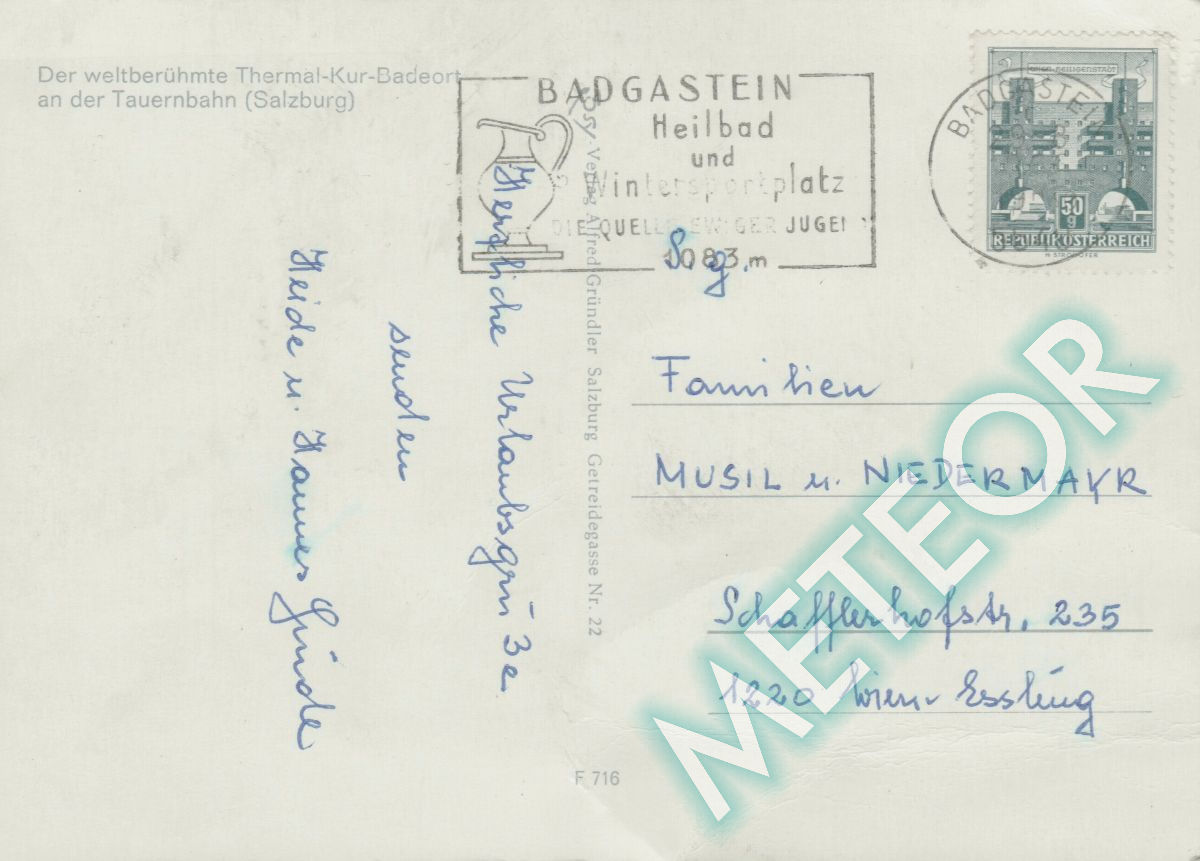 Der weltberühmte Thermal-Kur-Badeort
an der Tauernbahn (Salzburg)
BADGASTEIN
Heilbad
und
Wintersportplatz
DIE QUELLE EWIGER JUGEND
1083 m
WIEN-HEILIGENSTADT
50
g
REPUBLIK ÖSTERREICH
BADGASTEIN
Verlag Alfred Gründler Salzburg Getreidegasse Nr. 22
Herzliche Urlaubsgrüße
senden
Heide u. Hannes
S.g.
Familien
MUSIL u. NIEDERMAYR
Schafflerhofstr. 235
1220 Wien-Essling
F 716
METEOR